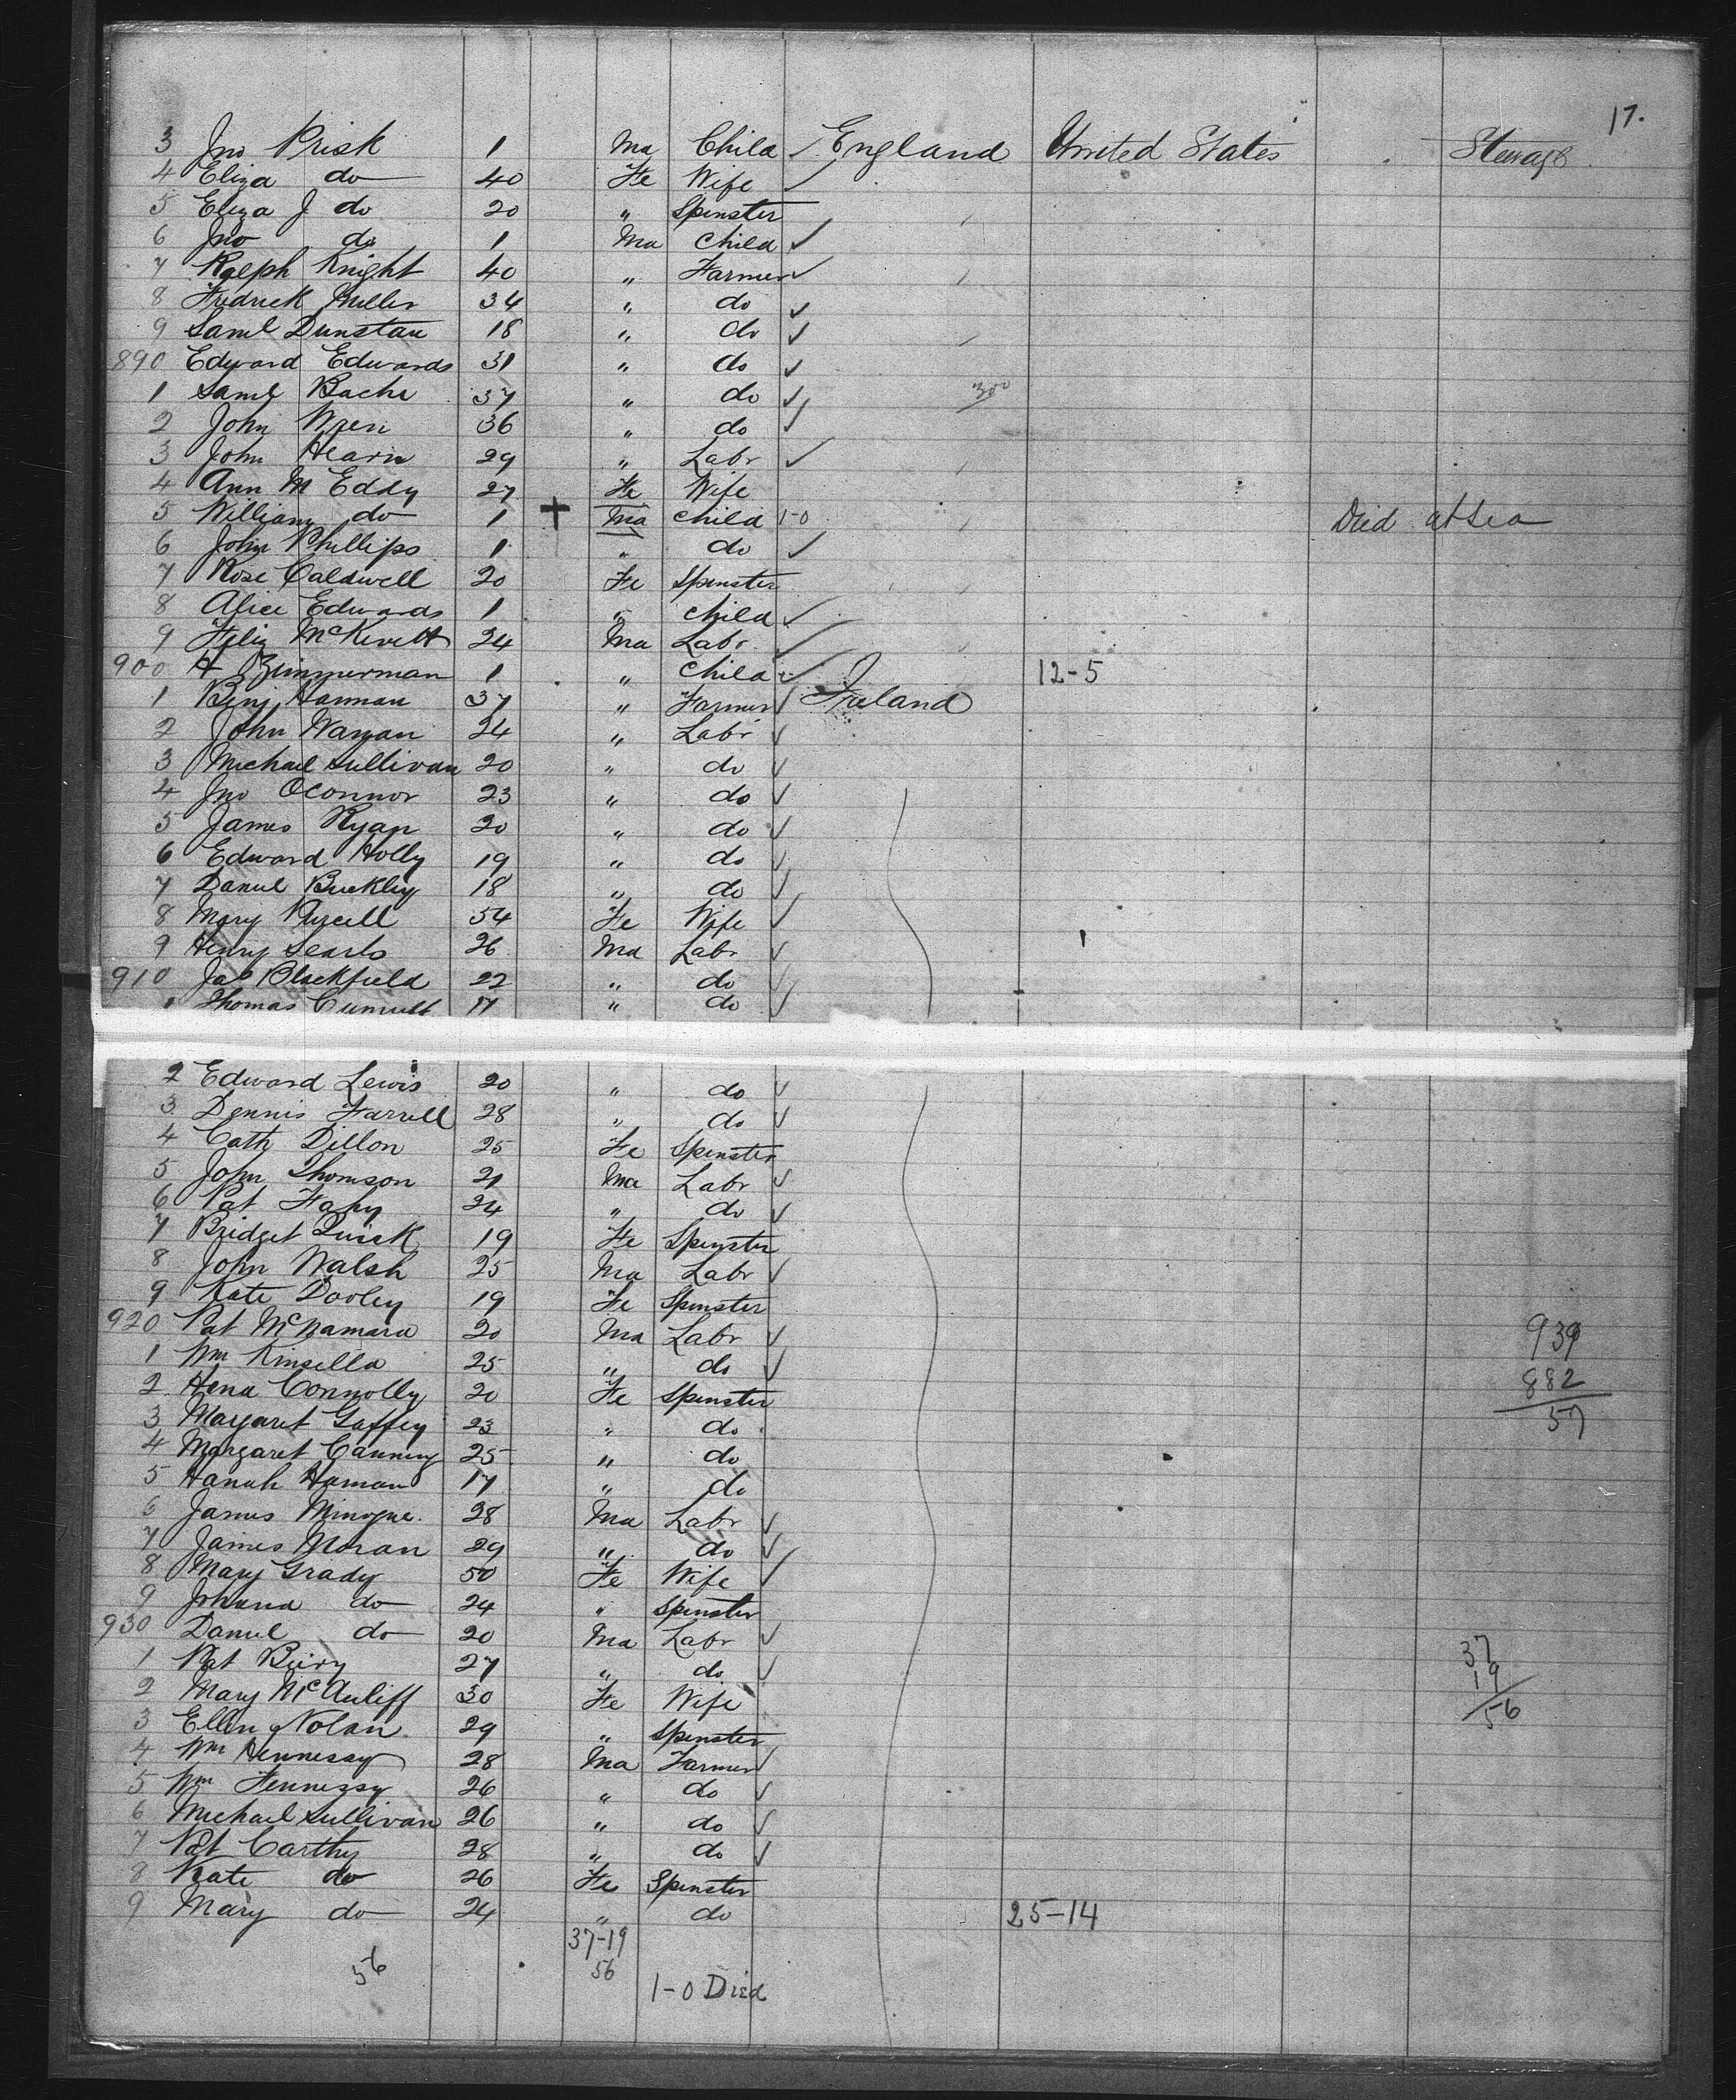 17.
3 Jno Prisk 1 Ma Child ✓ England United States Steerage
4 Eliza do 40 Fe Wife ✓
5 Eliza J do 20 " Spinster
6 Jno do 1 Ma Child ✓
7 Ralph Knight 40 " Farmer ✓
8 Fredrick Miller 34 " do ✓
9 Saml Dunstan 18 " do ✓
890 Edward Edwards 31 " do ✓
1 Saml Bache 37 " do ✓ 300
2 John Wren 36 " do ✓
3 John Hearn 29 " Labr ✓
4 Ann M Eddy 27 Fe Wife
5 William do 1 + Ma Child 1-0 Died at Sea
6 John Phillips 1 " do ✓
7 Rose Caldwell 20 Fe Spinster
8 Alice Edwards 1 " Child ✓
9 Felix McKevitt 24 Ma Labr ✓
900 H Zimmerman 1 " Child ✓ 12-5
1 Benj Hannan 37 " Farmer ✓ Ireland
2 John 24 " Labr ✓
3 Michael Sullivan 20 " do ✓
4 Jno OConnor 23 " do ✓
5 James Ryan 20 " do ✓
6 Edward Holly 19 " do ✓
7 Daniel Buckley 18 " do ✓
8 Mary Purcell 54 Fe Wife ✓
9 Henry Searls 26 Ma Labr ✓
910 Jas Blackfield 22 " do ✓
1 Thomas 17 " do ✓
2 Edward Lewis 20 " do ✓
3 Dennis Farrell 28 " do ✓
4 Cath Dillon 25 Fe Spinster
5 John Thomson 21 Ma Labr ✓
6 Pat Fahy 24 " do ✓
7 Bridget Quirk 19 Fe Spinster
8 John Walsh 25 Ma Labr ✓
9 Kate Dooley 19 Fe Spinster
920 Pat McNamara 20 Ma Labr ✓ 939
1 Wm Kinsella 25 " do ✓ 882
2 Hena Connolly 20 Fe Spinster 57
3 Margaret Gaffey 23 " do
4 Margaret Canning 25 " do
5 Hanah Haman 17 " do
6 James Minogue 28 Ma Labr ✓
7 James Moran 29 " do ✓
8 Mary Grady 50 Fe Wife ✓
9 Johana do 24 " Spinster
930 Daniel do 20 Ma Labr ✓ 37
1 Pat 27 " do ✓ 19
2 Mary McAuliff 30 Fe Wife 56
3 Ellen Nolan 29 " Spinster
4 Wm Hennessy 28 Ma Farmer ✓
5 Wm Fennessy 26 " do ✓
6 Michael Sullivan 26 " do ✓
7 Pat Carthy 28 " do ✓
8 Kate do 26 Fe Spinster
9 Mary do 24 " do 25-14
37-19
56 56
1-0 Died